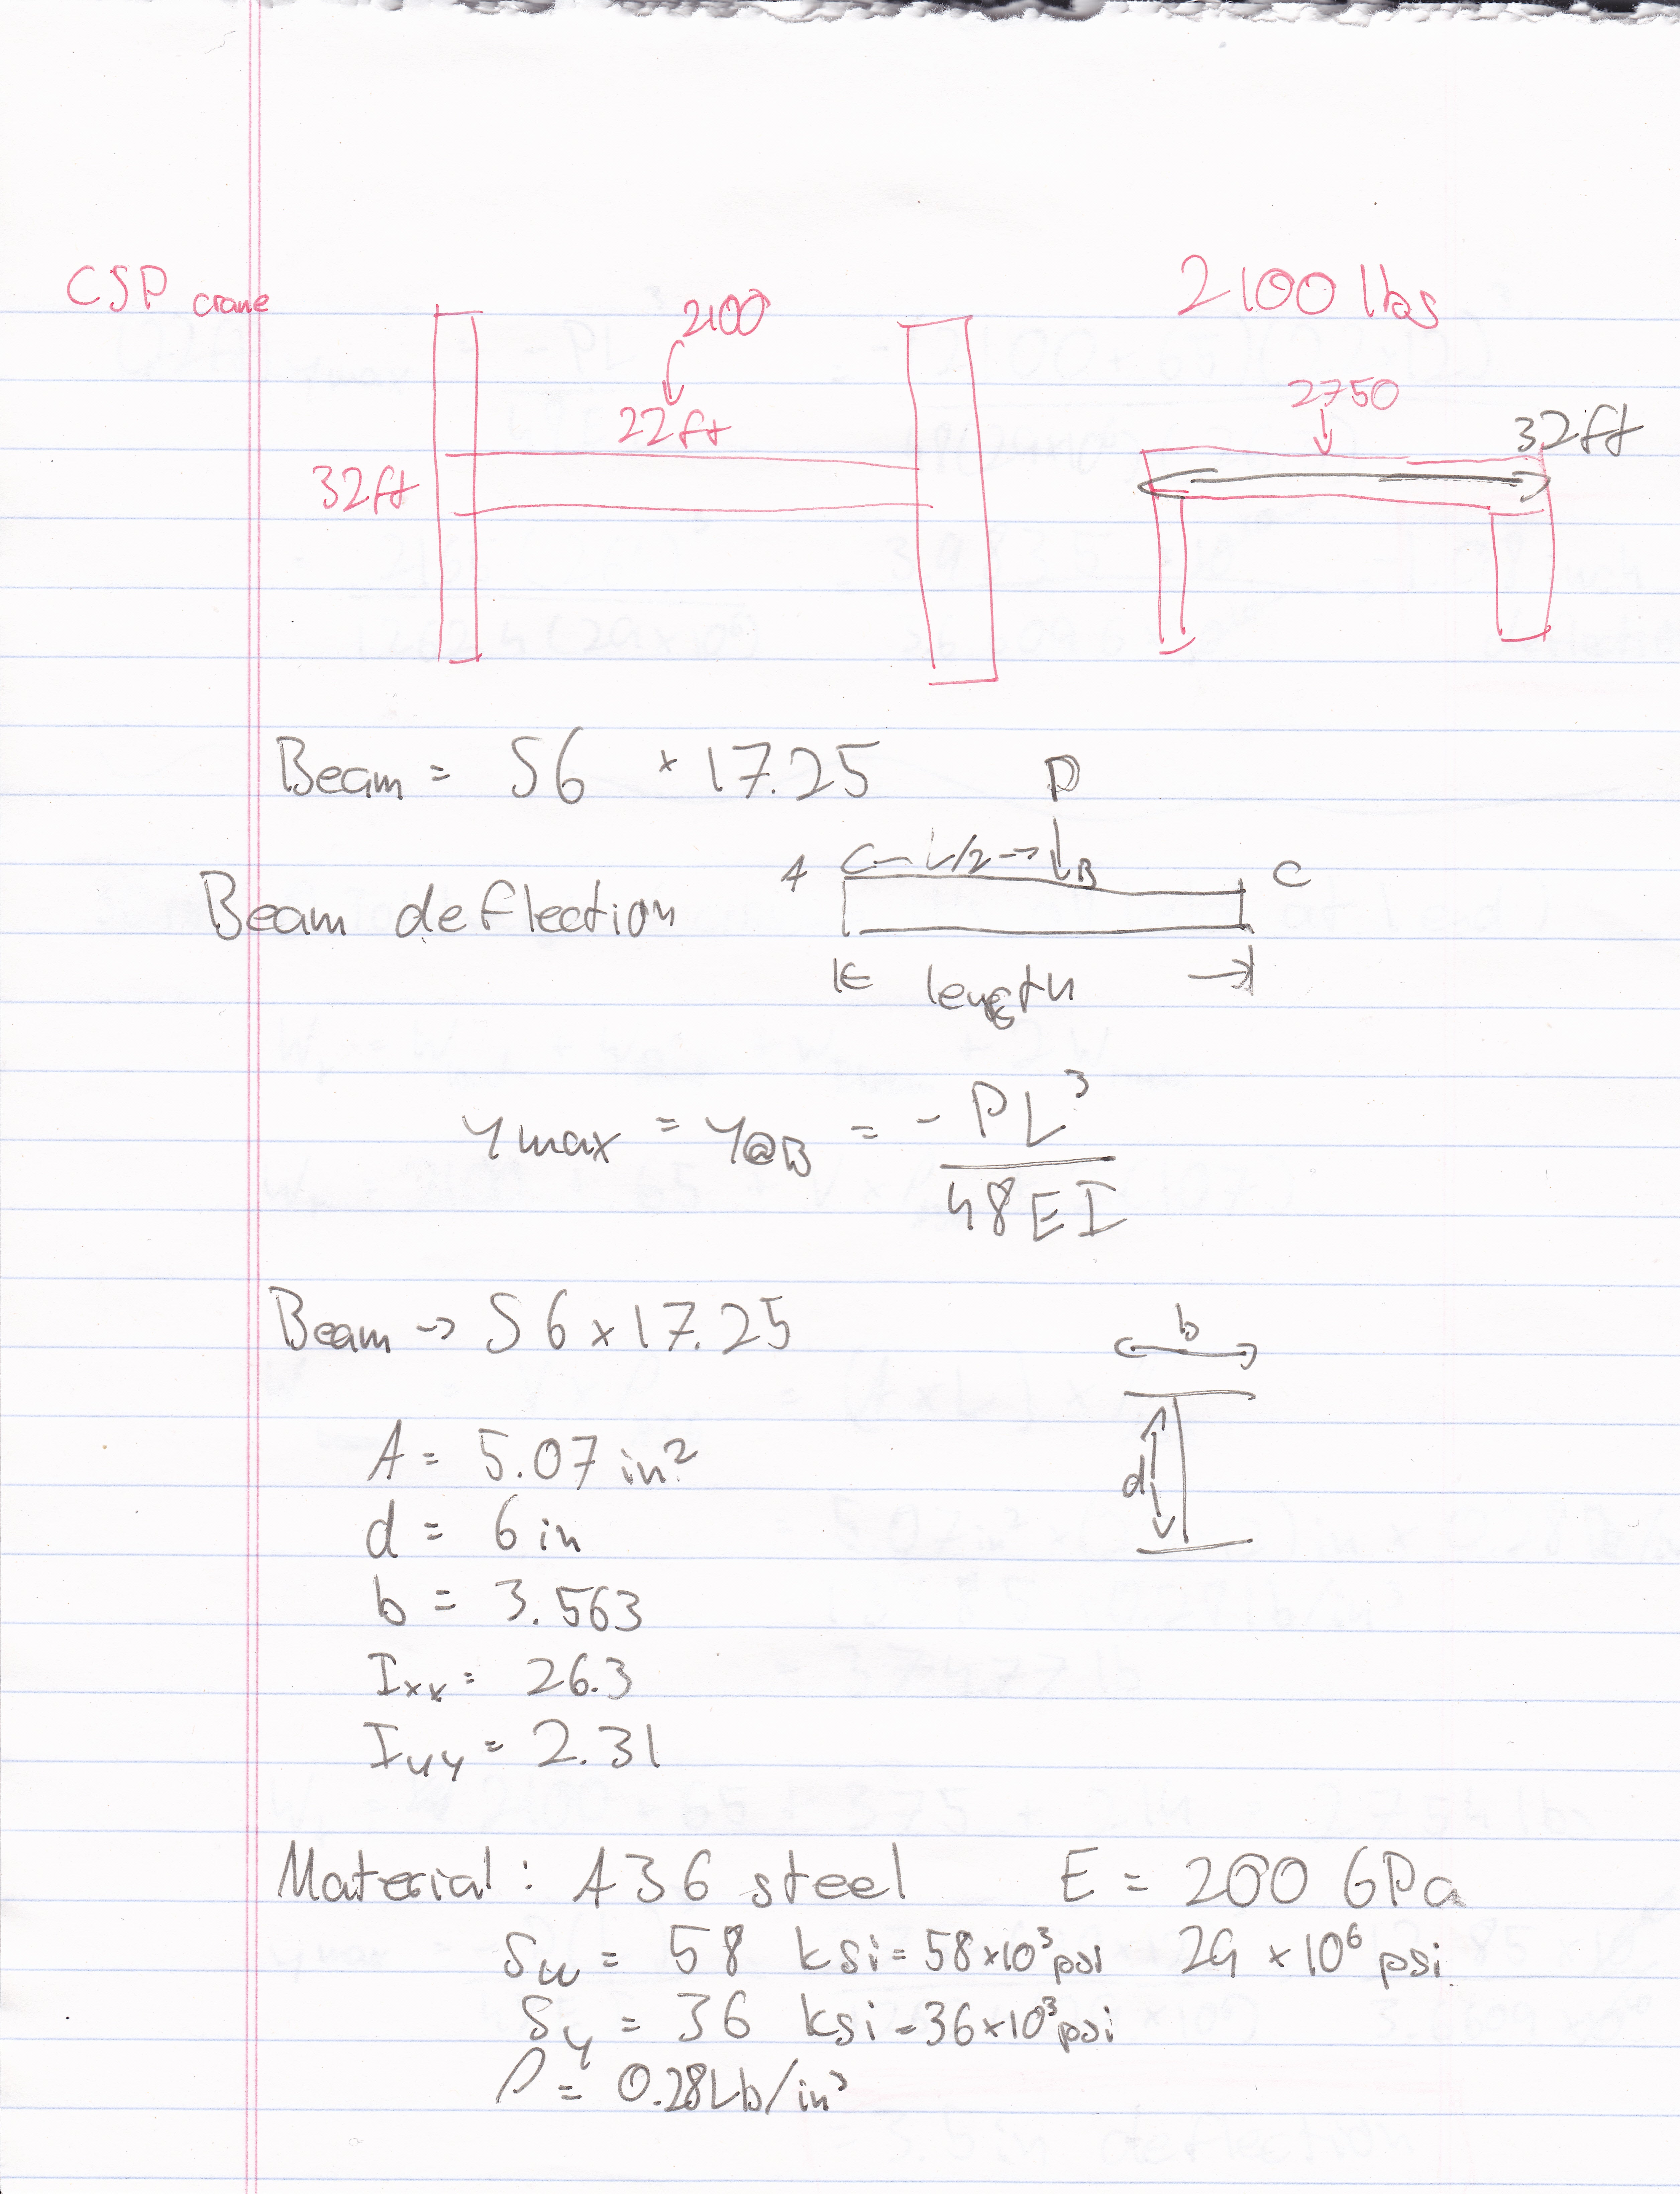 CSP crane
2100
22ft
32ft
2100 lbs
2750
32ft
Beam = S6 × 17.25
P
A L/2 B C
Beam deflection
length
ymax = y@B = -PL³
48EI
Beam → S6 × 17.25
b
A = 5.07 in²
d
d = 6 in
b = 3.563
Ixx = 26.3
Iyy = 2.31
Material: A36 steel E = 200 GPa
Su = 58 ksi = 58×10³ psi 29 × 10⁶ psi
Sy = 36 ksi = 36×10³ psi
ρ = 0.28 Lb/in³